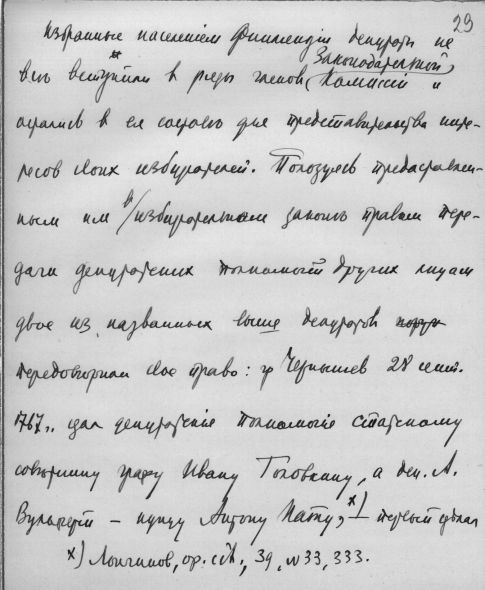 29
Избранные населенiем Финляндiи депутаты не
все вступили в ряды членов Законодательной Комиссiи и
остались в ея составе для представительства инте-
ресов своих избирателей. Пользуясь предоставлен-
ным им в избирательном законе правом пере-
дачи депутатских полномочiй другим лицам
двое из названных выше депутатов
передоверили свое право: гр Чернышев 28 сент.
1767 г. сдал депутатскiе полномочiя статскому
советнику графу Ивану Головкину, а деп. А.
– купцу Антону x) – первый
x) Лонгинов, op. cit., 39, №33, 333.